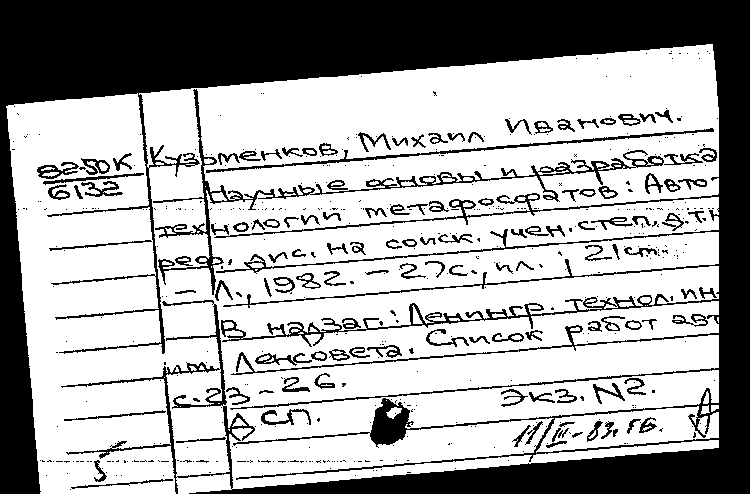 82-50К
6132
Кузьменков, Михаил Иванович.
Научные основы и разработка
технологии метафосфатов: Авто-
реф. дис. на соиск. учен. степ. д.т.н
- Л., 1982. - 27с., ил. ; 21см.
В надзаг.: Ленингр. технол. ин-
им. Ленсовета. Список работ авт
с. 23-26.
ДСП.
экз. N2.
11/III-83г. ГБ.
5